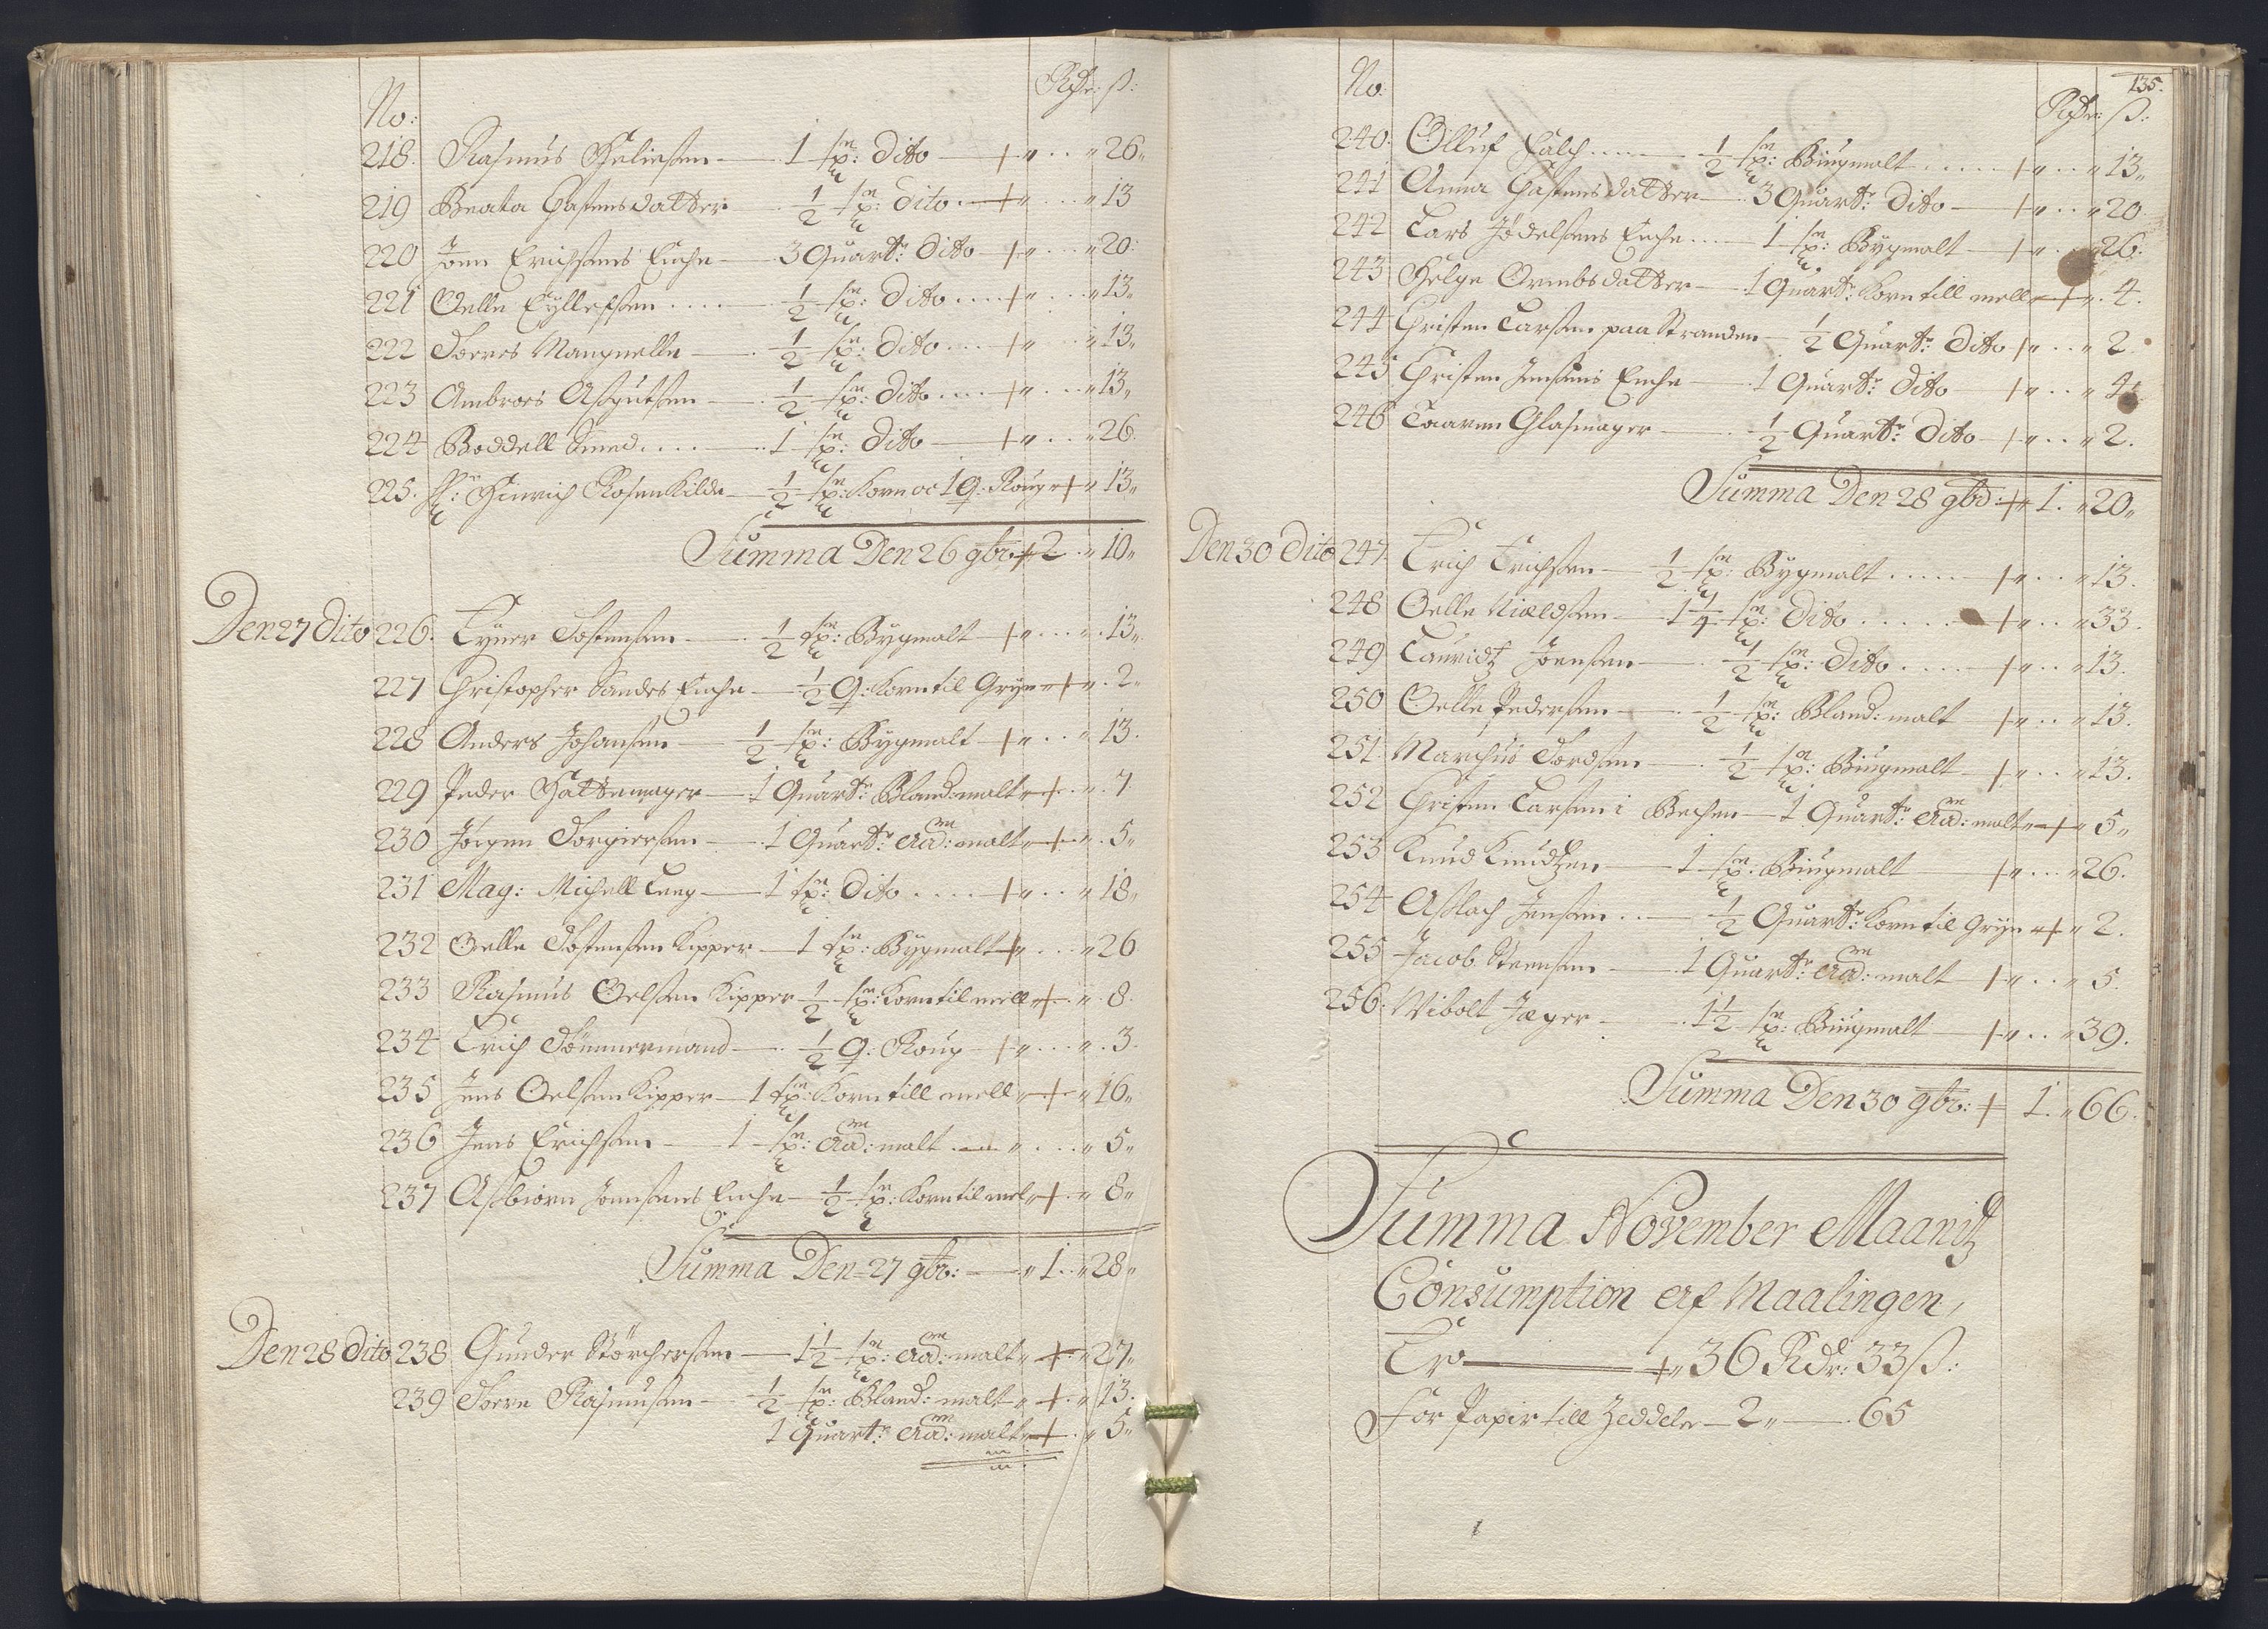 No: Rdr: ß:
218. Rasmus Heliesen 1 sp: dito + „ „ 26„
219 Beata Hastensdatter ½ sp: dito + „ „ 13
220 Joen Erichsens Enche 3 Quart: dito + „ „ 20
221 Oelle Eyllefsen ½ sp: dito + „ „ 13„
222 Sveres Mangnelle ½ sp: dito + „ „ 13„
223 Ambroes Asgutsen ½ sp: dito + „ „ 13„
224 Boddell Smed 1 sp: dito + „ „ 26
225. Hr: Hinrich Rosenkilde ½ sp: Korn oc 1 Q: Roug + „ 13„
Summa Den 26 9br: + 2 „ 10„
Den 27 dito 226. Eyner Tostensen ½ sp: Bygmalt + „ „ 13„
227 Christopher Sandes Enche ½ Q: Korn til Gryn + „ 2„
228 Anders Johansen ½ sp: Bygmalt + „ „ 13.
229 Peder Hattemager 1 Quart: Bland: malt + „ 7
230 Jörgen Torgiersen 1 Quart: Ad: malt + „ 5„
231 Mag: Michell Leng 1 sp: dito + „ „ 18„
232 Oelle Tostensen Kipper 1 sp: Bygmalt + „ „ 26
233 Rasmus Oelsen Kipper ½ sp: Korn til mell + „ 8.
234 Erich Tömmermand ½ Q: Roug + „ „ 3.
235 Jens Oelsen Kipper 1 sp: Korn till mell + „ 16„
236 Jens Erichsen 1 sp: Ad: malt „ „ 5„
237 Asbiörn Joensens Enche ½ sp: Korn til mel + „ 8„
Summa Den 27 9br: „ 1 „ 28„
Den 28 dito 238 Gunder Störchersen 1½ sp: Ad: malt „ + „ 27„
239 Sörn Rasmusen ½ sp: Bland: malt „ + „ 13.
1 Quart: Ad: malt + „ 5„
135.
No: Rdr: ß:
240. Olluf Falch ½ sp: Biugmalt + „ „ 13„
241 Anna Hastensdatter 3 Quart: dito + „ „ 20
242 Lars Jödelsens Enche 1 sp: Bygmalt + „ „ 26.
243 Helge Ormbsdatter 1 Quart: Korn till mell + „ 4.
244 Christen Larsen paa Stranden ½ Quart: dito + „ „ 2.
245 Christen Jensens Enche 1 Quart: dito + „ „ 4
246 Laaren Glasmager ½ Quart: dito + „ „ 2.
Summa Den 28 9br: + 1. „ 20„
Den 30 dito 247. Erich Erichsen ½ sp: Bygmalt + „ „ 13.
248 Oelle Nieldsen 1¼ sp: dito + „ „ 33.
249 Lauridtz Joensen ½ sp: dito + „ „ 13.
250 Oelle Pedersen ½ sp: Bland: malt + „ „ 13.
251. Marchus Tordsen ½ sp: Biugmalt + „ „ 13.
252 Christen Larsen i Bechen 1 Quart: Ad: malt + „ 5„
253 Knud Knudtzen 1 sp: Biugmalt + „ „ 26.
254 Aslach Jensen ½ Quart: Korn til Gryn + „ 2.
255 Jacob Steensen 1 Quart: Ad: malt + „ „ 5.
256. Wibolt Jæger 1½ sp: Biugmalt + „ „ 39.
Summa Den 30 9br: + 1. „ 66.
Summa November Maanitz
Consumption af Maalingen,
Er + „ 36 Rdr: 33 ß:
For Papir till Zeddeler 2„ 65